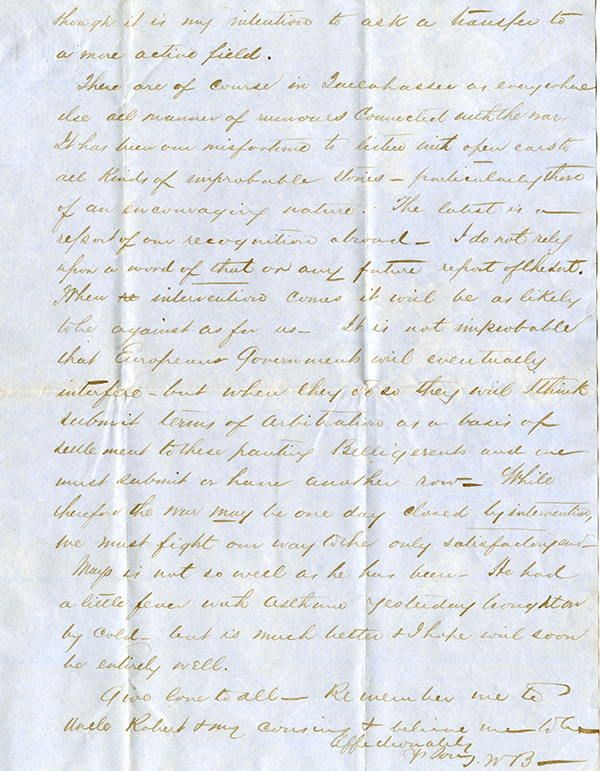 though it is my intention to ask a transfer to
a more active field.
There are of course in Tallahassee as everywhere
else all manner of rumours connected with the war.
It has been our misfortune to listen with open ears to
all kinds of improbable stories – particularly those
of an encouraging nature. The latest is a
report of our recognition abroad – I do not rely
upon a word of that or any future report of the sort.
When intervention comes it will be as likely
to be against as for us – It is not improbable
that European Governments will eventually
interfere – but when they do so they will I think
submit terms of Arbitration as a basis of
settlement to these panting Belligerents and we
must submit or have another row – While
therefore the war may be one day closed by intervention,
we must fight our way to the only satisfactory end –
Mays is not so well as he has been – He had
a little fever with Asthma yesterday brought on
by cold – but is much better & I hope will soon
be entirely well.
Give love to all – Remember me to
Uncle Robert & my cousins & believe me to be
Affectionately
Yrs W B –